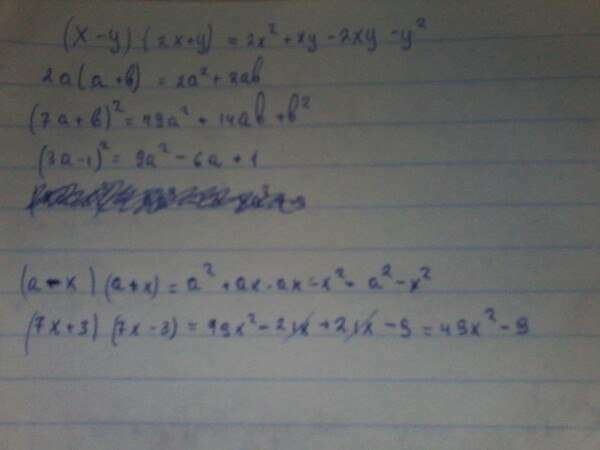 (x-y)(2x+y) = 2x²+xy-2xy-y²
2a(a+b) = 2a²+2ab
(7a+b)² = 49a²+14ab+b²
(3a-1)² = 9a²-6a+1
(a-x)(a+x) = a²+ax-ax-x² = a²-x²
(7x+3)(7x-3) = 49x²-21x+21x-9 = 49x²-9